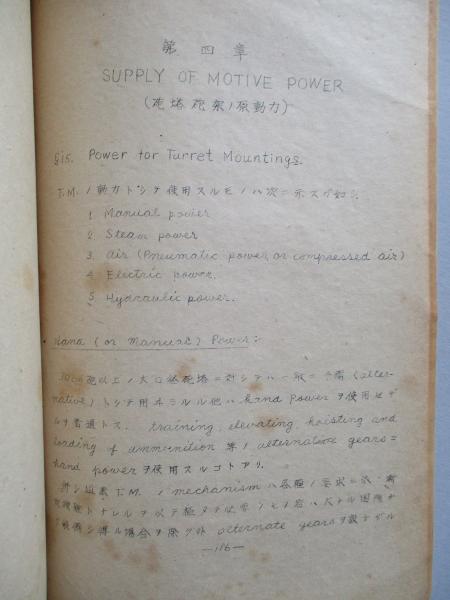 第四章
SUPPLY OF MOTIVE POWER
(砲塔砲架ノ原動力)
§15. Power for Turret Mountings.
T.M. ノ動力トシテ使用スルモノハ次ニ示スガ如シ.
1 Manual power
2. Steam power
3. Air (Pneumatic power, or compressed air)
4 Electric power.
5 Hydraulic power.
Hand (or Manual) Power:
砲以上ノ大口径砲塔ニ対シテハ一般ニ予備 (alter-
native) トシテ用ヰラルル他ハ hand power ヲ使用セザ
ルヲ普通トス. training, elevating, hoisting and
loading of ammunition 等ノ alternative gears ニ
hand power ヲ使用スルコトアリ.
T.M. ノ mechanism ハ各種ノ
場合ヲ除ク外 alternate gears ヲ設ケザル
—116—